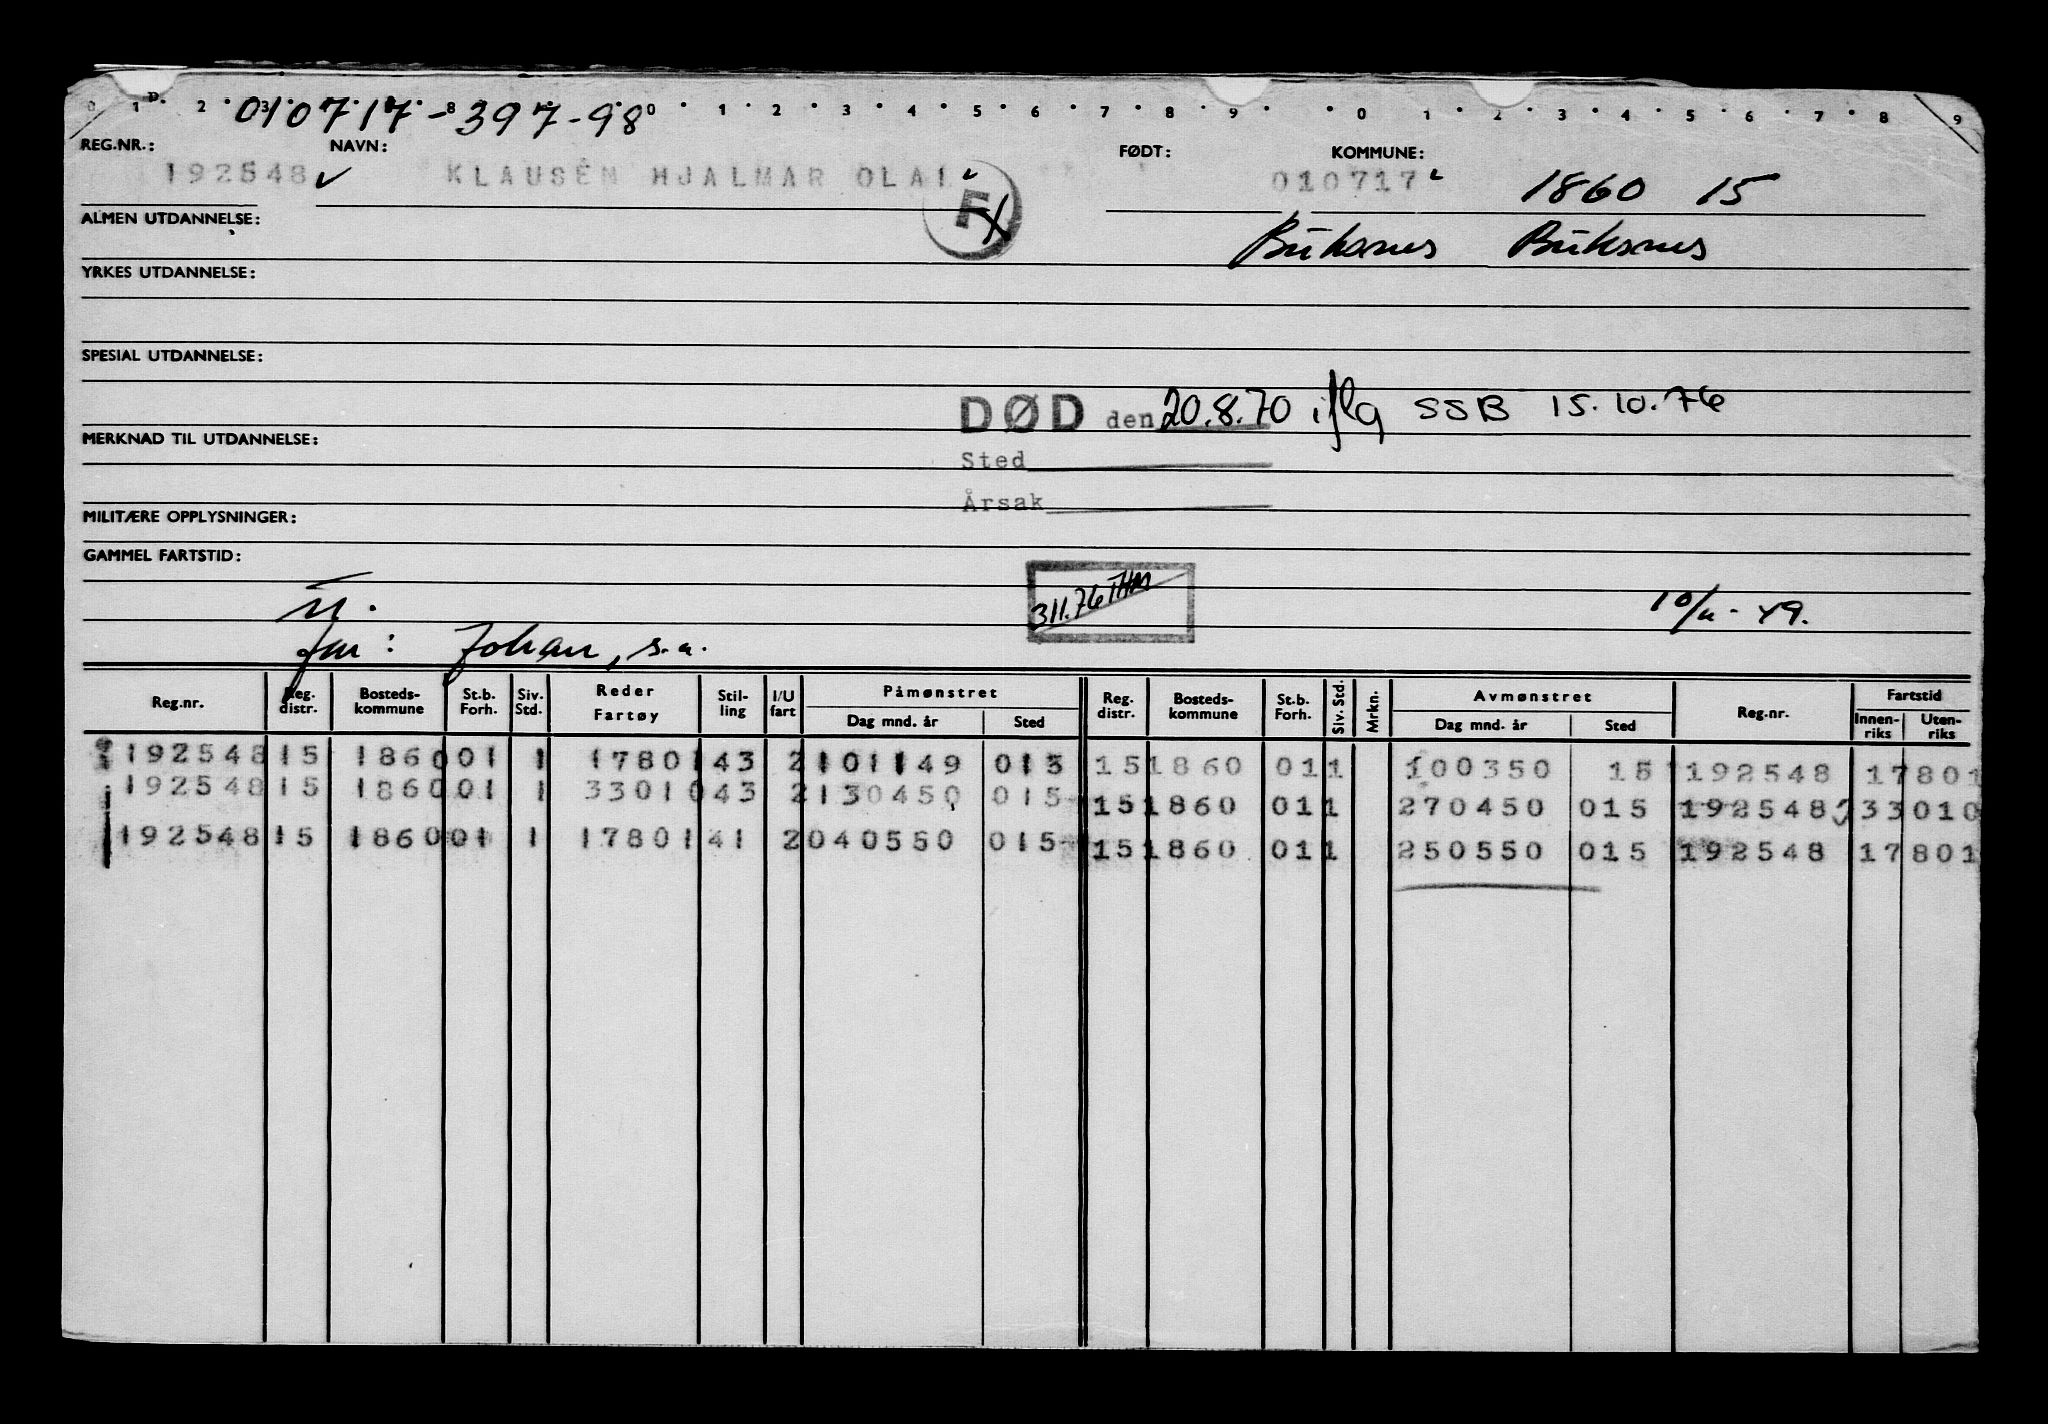 0 1 2 3 8 0 1 2 3 4 5 6 7 8 9 0 1 2 3 4 5 6 7 8 9
010717-397-98
REG.NR.: NAVN: FØDT: KOMMUNE:
192548 KLAUSEN HJALMAR OLAI 010717 1860 15
F
ALMEN UTDANNELSE: Buksnes Buksnes
YRKES UTDANNELSE:
SPESIAL UTDANNELSE:
DØD den 20.8.70 iflg SSB 15.10.76
MERKNAD TIL UTDANNELSE:
Sted
Årsak
MILITÆRE OPPLYSNINGER:
GAMMEL FARTSTID:
311.76 THM
10/11-49.
far: Johan, s.a.
Reg.nr. Reg. distr. Bosteds-kommune St.b. Forh. Siv. Std. Reder Fartøy Stil-ling I/U fart Påmønstret Dag mnd. år Sted Reg. distr. Bosteds-kommune St.b. Forh. Siv. Std. Mrkn. Avmønstret Dag mnd. år Sted Reg.nr. Fartstid Innen-riks Uten-riks
192548 15 1860 01 1 17801 43 2 101149 015 15 1860 01 1 100350 15 192548 17801
192548 15 1860 01 1 33010 43 2 130450 015 15 1860 01 1 270450 015 192548 33010
192548 15 1860 01 1 17801 41 2 040550 015 15 1860 01 1 250550 015 192548 17801